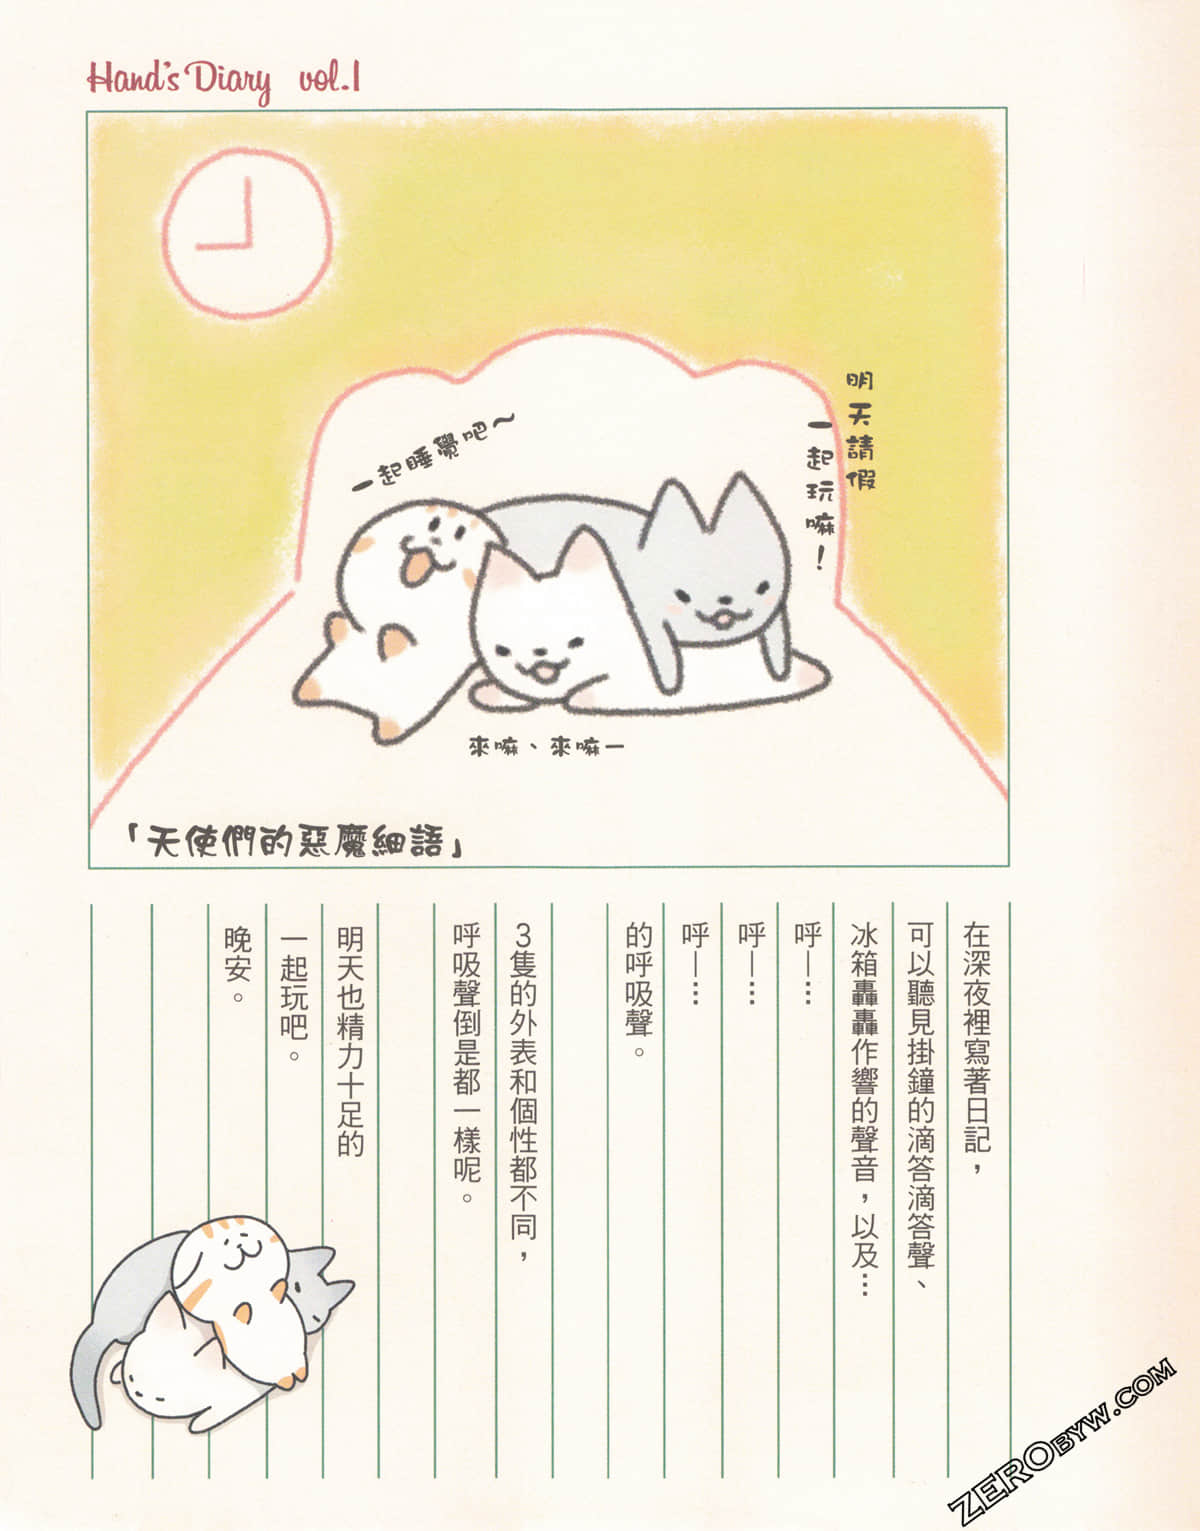 Hand's Diary vol.1
明天請假
一起玩嘛！
一起睡覺吧～
來嘛、來嘛一
「天使們的惡魔細語」
在深夜裡寫著日記，
可以聽見掛鐘的滴答滴答聲、
冰箱轟轟作響的聲音，以及…
呼—…
呼—…
呼—…
的呼吸聲。
3隻的外表和個性都不同，
呼吸聲倒是都一樣呢。
明天也精力十足的
一起玩吧。
晚安。
ZEROBYW.COM